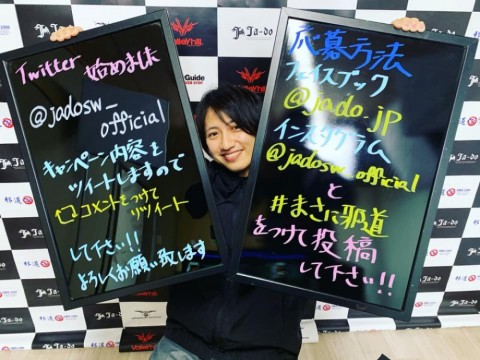 Twitter 始めました
@jadosw_
official
キャンペーン内容を
ツイートしますので
コメントをつけて
リツイート
して下さい!!
よろしくお願い致します
応募方法
フェイスブック
@jado.jP
インスタグラム
@jadosw_official
と
#まさに邪道
をつけて投稿
して下さい!!
Ja-do
Valkyrhill
Guide
邪道